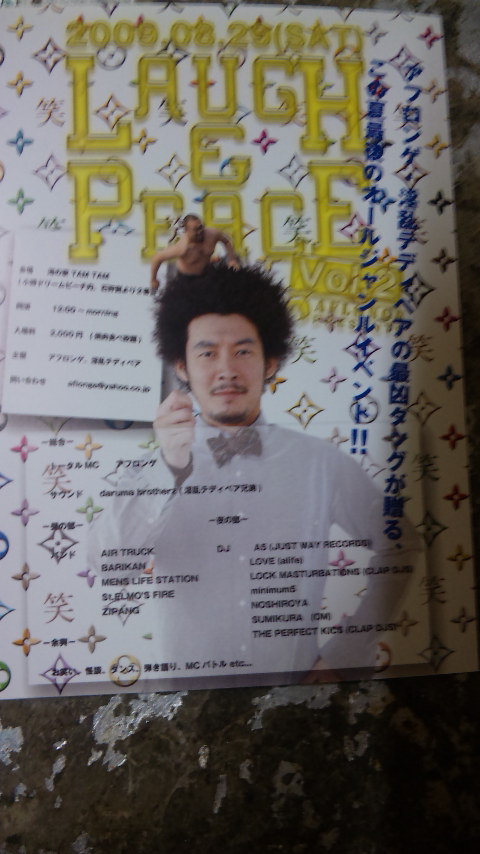 2009.08.29(SAT)
LAUGH
&
PEACE
Vol.2
アフロンゲ×淫乱テディベアの最凶タッグが贈る、
この夏最後のオールジャンルイベント!!
会場 海の家 TAM TAM
開演 13:00～morning
入場料 2,000円
主催 アフロンゲ、淫乱テディベア
問い合わせ
タルMC アフロンゲ
サウンド daruma brotherz (淫乱テディベア兄弟)
ー昼の部ー
ー夜の部ー
バンド
AIR TRUCK
BARIKAN
MENS LIFE STATION
St.ELMO'S FIRE
ZIPANG
DJ
A5 (JUST WAY RECORDS)
LOVE (alife)
LOCK MASTURBATIONS (CLAP DJS)
minimum5
NOSHIROYA
SUMIKURA
THE PERFECT KICS (CLAP DJS)
ー余興ー
お笑い 怪談、ダンス、弾き語り、MCバトル etc...
笑
笑
笑
笑
笑
笑